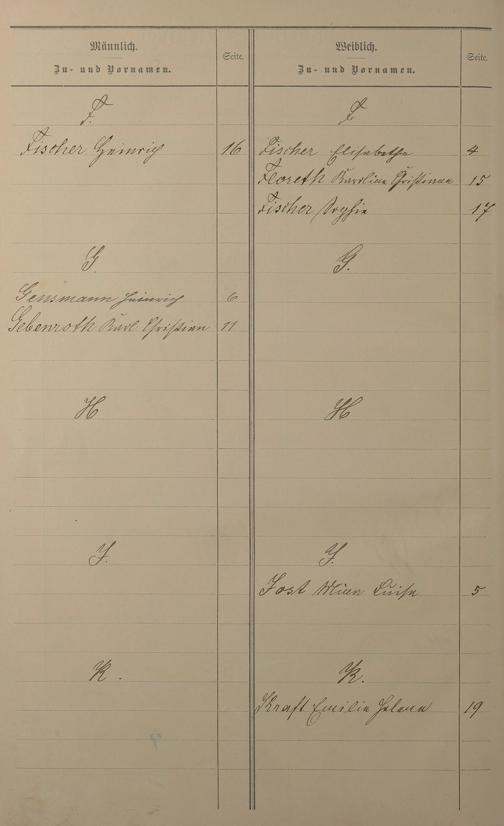 Männlich.
Zu- und Vornamen.
Seite.
F.
Fischer Heinrich 16
G.
Gensmann Heinrich 6
Gebenroth Karl Christian 11
H
J.
K.
Weiblich.
Zu- und Vornamen.
Seite.
F.
Fischer Elisabethe 4
Floreth Karoline Christiane 15
Fischer Sophie 17
G.
H
J.
Jost Luise 5
K.
Kraft Emilie Helene 19